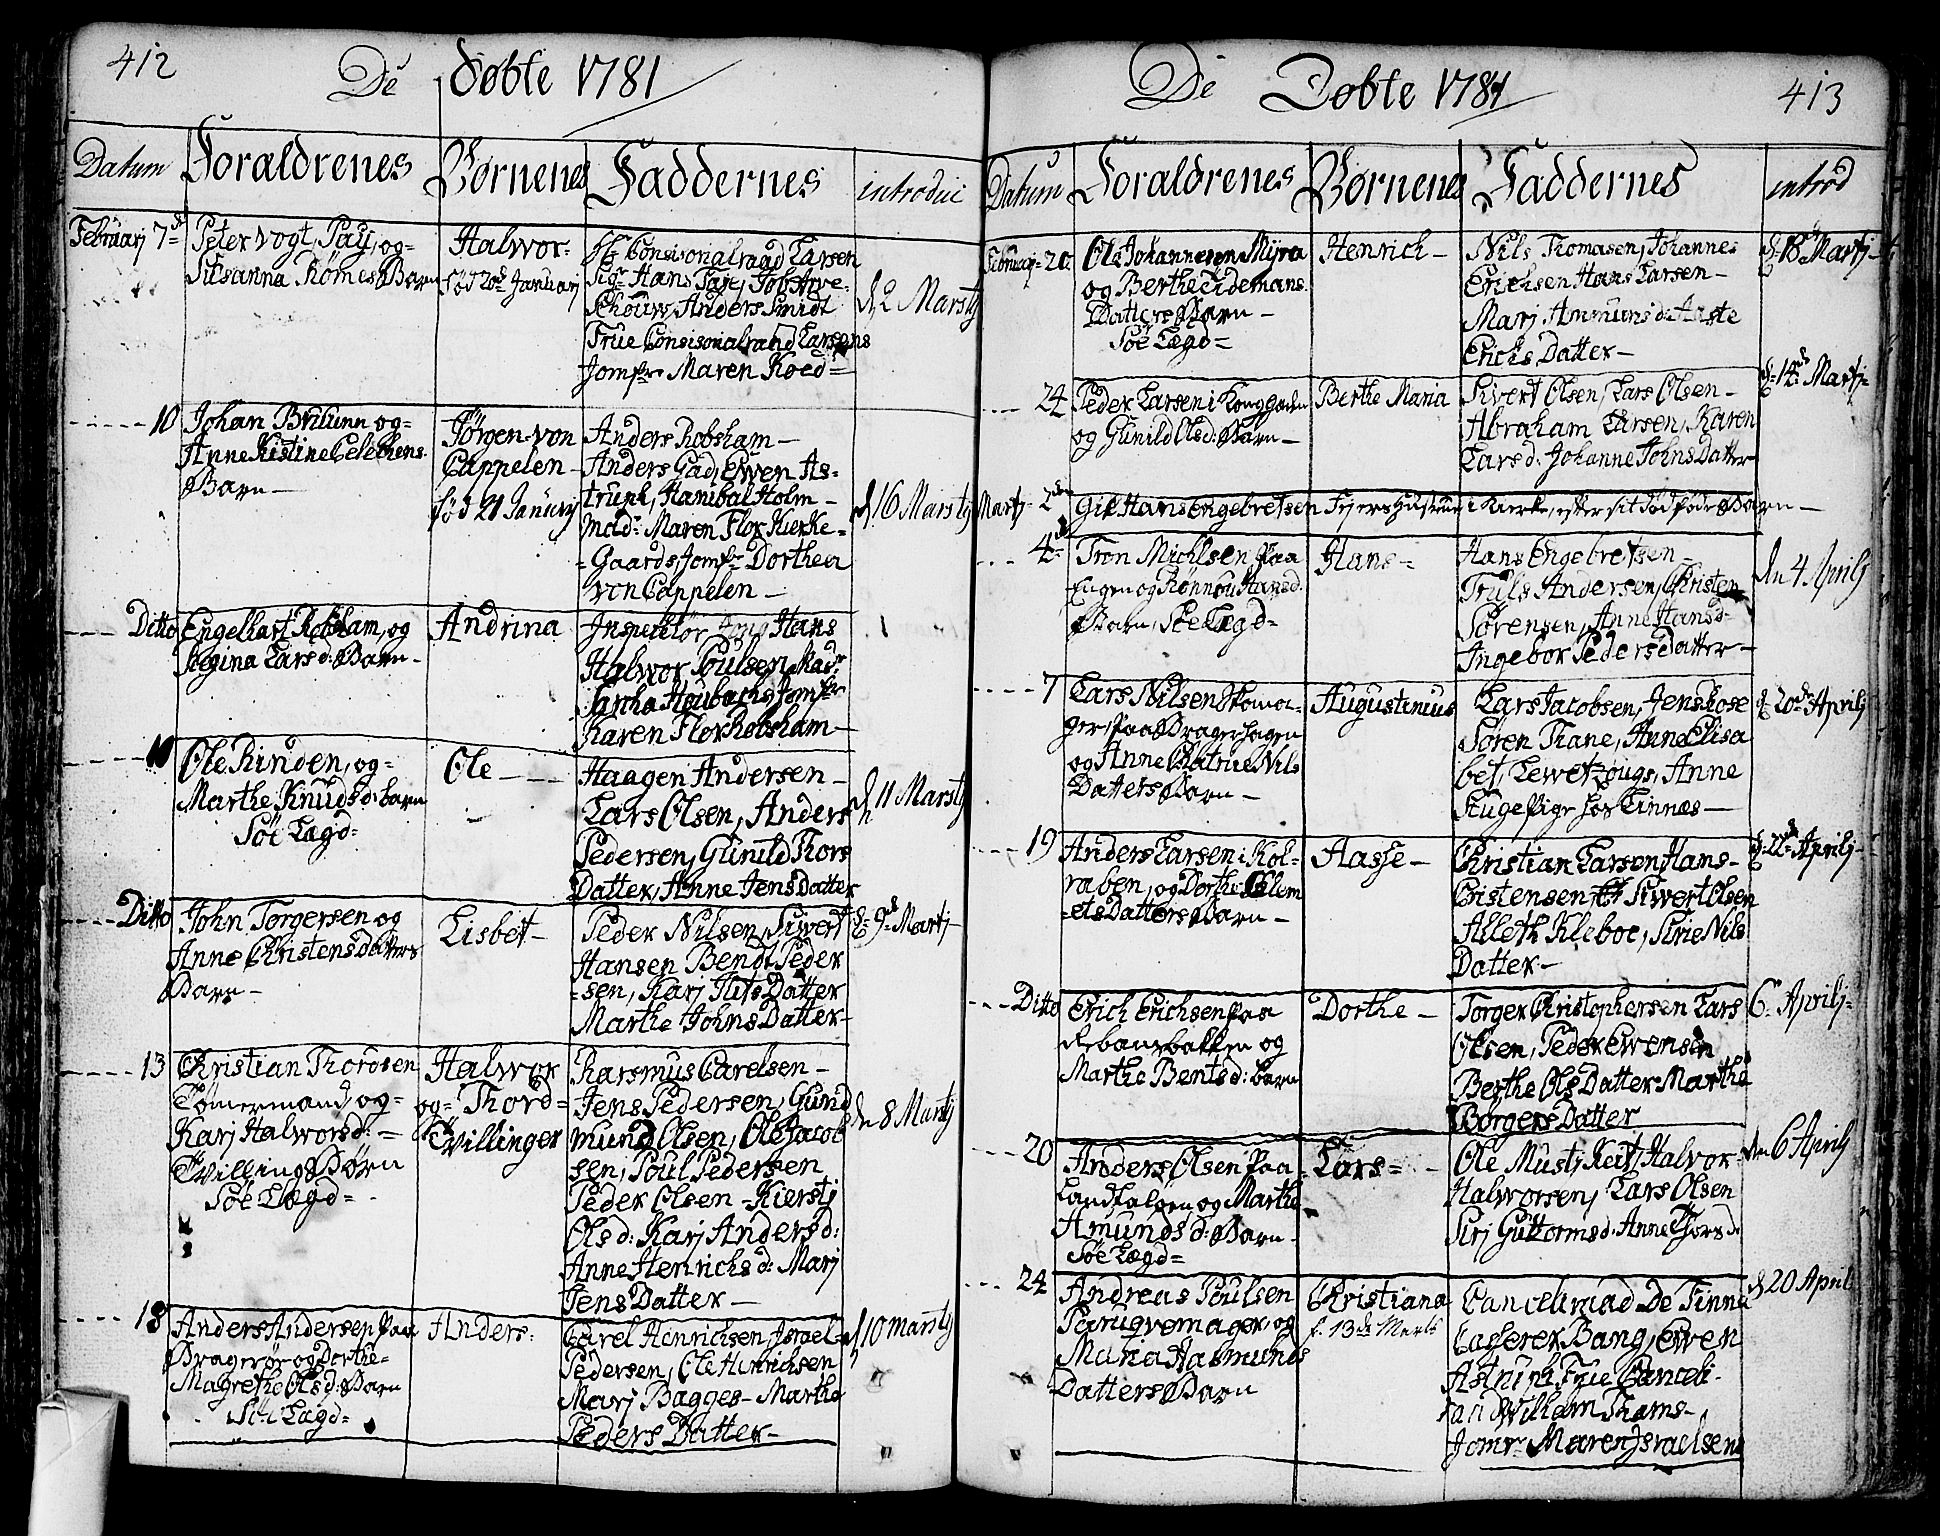 412
De Døbte 1781
Datum Foraldrenes Børnenes Faddernes introduc
Februarj 7de Peter Vogt Pay, og Susanna Kømes Barn
Halwor
fød 20de Januarj
Hr Consisorialraad Larsen
Sigr Hans Pay, Job Arve
Schouw, Anders Smidt
Frue Consisorialraad Larsens
Jomfr Maren Koed
d. 2 Marstj
10 Johan Bruunn og
Anne Kistine
Barn
Jørgen von
Cappelen
fød 21 Januarj
Anders Robsham
Anders Gad, Ewen As-
trupk, Hanibal Holm
Mad: Maren Flor Kierke-
Gaards, Jomfr Dorthea
von Cappelen
d. 16 Marstj
Ditto Engelhart Robsham, og
Regina Larsd: Barn
Andrina
Hans
Halwor Poulsen, Madr
Houbachs Jomfr
Karen Flor Robsham
Ole Rinden, og
Marthe Knudsd: barn
Søe Lægd
Ole
Haagen Andersen
Lars Olsen, Anders
Pedersen, Gunild Thors
Datter, Anne Jens Datter
d 11 Marstj
Ditto John Torgersen og
Anne Christens Datters
Barn
Lisbet
Peder Nilsen, Siwert
Hansen Bendt Peder
sen, Karj Datter
Marthe Johns Datter
d. 9de Martj
13 Christian Thorosen
Tømermand og
Karj Halworsd:
Tvilling Børn
Søe Lægd
Halwor
og Thord
Tvillinger
Rarsmus Carelsen
Jens Pedersen, Gund
mund Olsen, Ole Jacob
sen, Poul Pedersen
Peder Olsen Kierstj
Olsd: Karj Andersd:
Anne Henrichsd: Marj
Jens Datter
den 8 Martj
18 Anders Andersen paa
Bragerør og Dorthe
Magrethe Olsd: Barn
Søe Lægd
Anders
Carel Henrichsen, Israel
Pedersen, Ole Henrichsen
Marj Bagges Marthe
Peders Datter
d 10 marstj
413
De Døbte 1781
Datum Foraldrenes Børnenes Faddernes introd
Februarj 20 Ole Johannesen Myra
og Berthe Tidemans
Datters Barn
Søe Lægd
Henrich
Nils Thomasen, Johannes
Erichsen Hans Larsen
Marj Ammunsd: Aaste
Erichs Datter
d. 18 Martj
24 Peder Larsen i Konggaden
og Gunild Olsd: Barn
Berthe Maria
Siwert Olsen, Lars Olsen
Abraham Larsen, Karen
Larsd: Johanne Johns Datter
d. 14de Martj
Martj 2den Gik Hans Engebretsen Fejers Hustrue i Kirke, efter sit Død fødde Barn
4de Tron Michlsen paa
Engen og Rønnou Hansd.
Barn, Søe Lægd
Hans
Hans Engebretsen
Truls Andersen, Christen
Sørensen, Anne Hansd
Ingebor Peders Datter
den 4. Aprilj
7 Lars Nilsen Skomager paa Bragerhagen
og Anne Catrine Nils
Datters Barn
Augustinus
Lars Jacobsen, Jens Rose
Søren Trane, Anne Elisa
bet, Anne
d. 20de Aprilj
19 Anders Larsen i Kol-
raben, og Dorthe Clem
ets Datters Barn
Aasse
Christian Larsen Hans
Cristensen, Siwert Olsen
Alleth Kleboe, Sirie Nils
Datter
d. 22de Aprilj
Ditto Erich Erichsen paa
bakken og
Marthe Bentsd: barn
Dorthe
Torger Christophersen Lars
Olsen, Peder Ewensen
Berthe Ols Datter Marthe
Borgers Datter
6. Aprilj
20 Anders Olsen paa
Landfaløen og Marthe
Amundsd: Barn
Søe Lægd
Lars
Ole Must, Halvor
Halworsen, Lars Olsen
Sirj Guttormsd: Anne Thorsd:
den 6 Aprilj
24 Andreas Poulsen
Peruqvemager og
Maria Aasmunds
Datters Barn
Christiana
f. 13de Marts
Cancelieraad De Finne
Casserer Bang, Ewen
Astrunk Frue Canceli-
raad Wilhelm Thams
Jomr Maren Israelsens
d 20 April